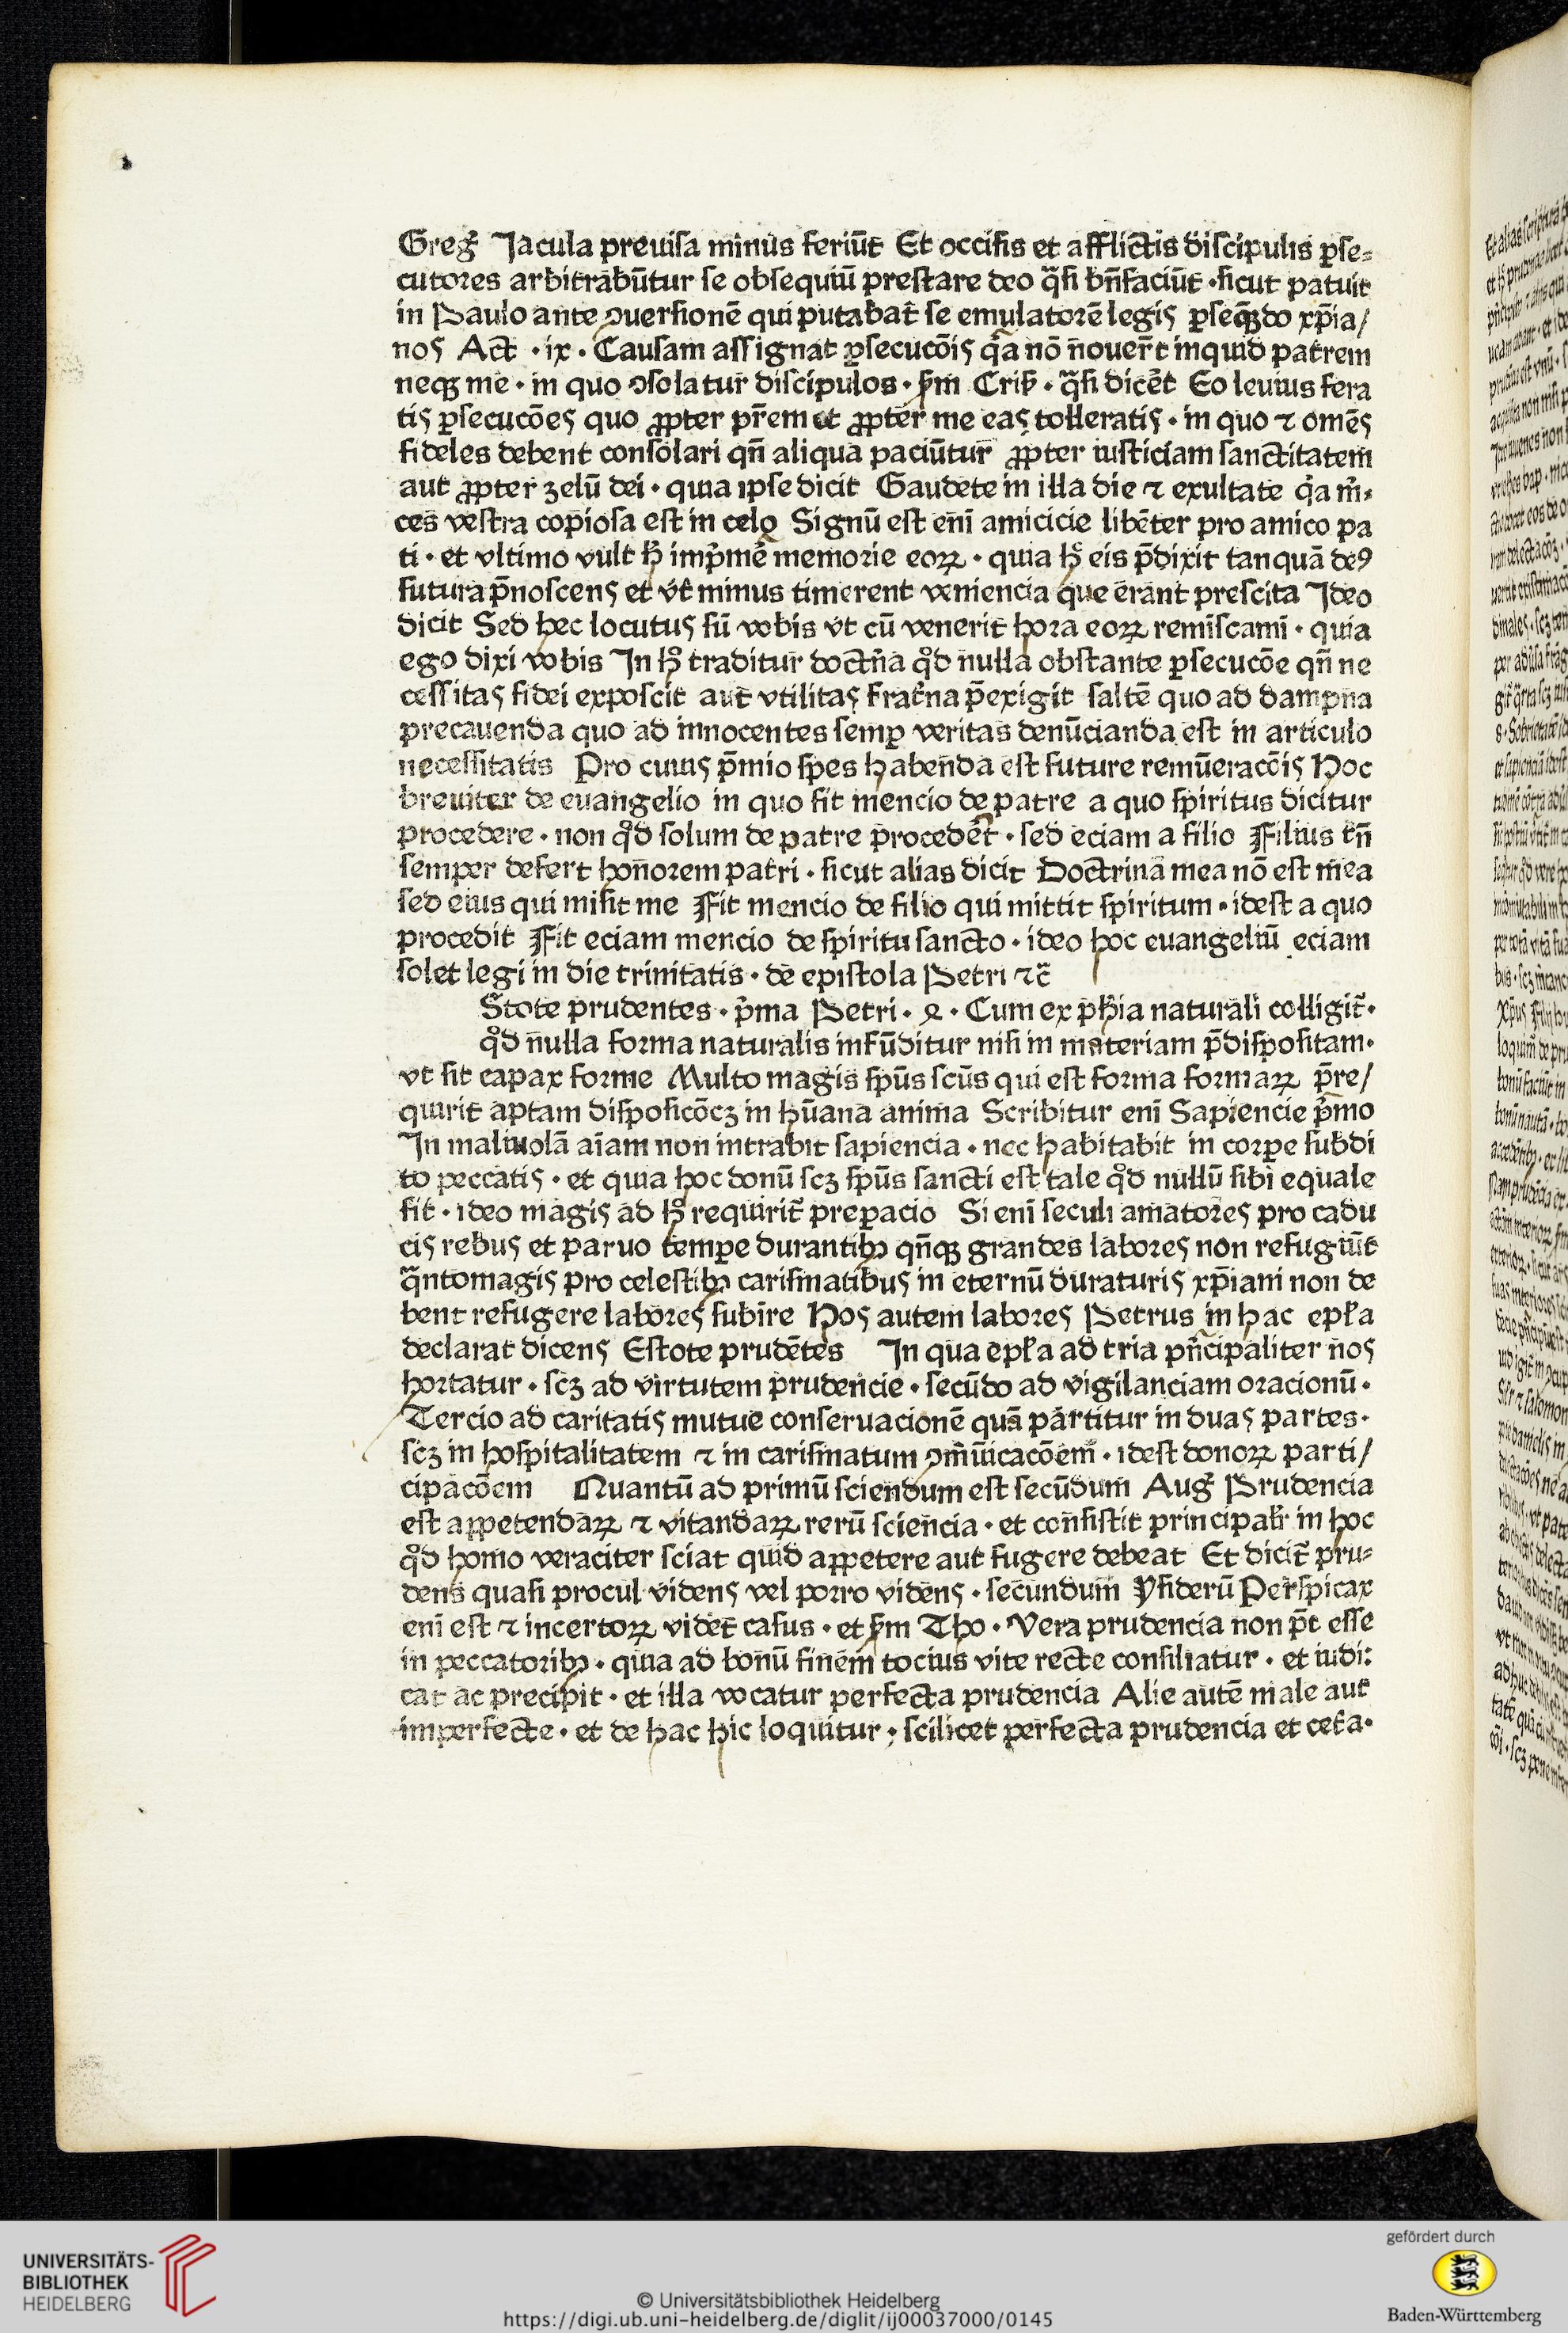 Greg̉ Jacula preuisa minus feriūt Et occisis et afflictis discipulis ꝑse=
cutores arbitrabūtur se obsequiū prestare deo q̄si bn̄faciūt · sicut patuit
in Paulo ante ꝯuersionē qui putabat̉ se emulatorē legis ꝑseq̄ꝫdo xp̄ia/
nos Act̉ · ix · Causam assignat ꝑsecucōis q̄a nō nouer̄t inquid patrem
neqꝫ me · in quo ꝯsolatur discipulos · ẜm Cris̉ · q̄si dicēt Eo leuius fera
tis ꝑsecucōes quo ꝓpter pr̄em et ꝓpter me eas tolleratis · in quo ⁊ omēs
fideles debent consolari qn̄ aliqua paciūtur ꝓpter iusticiam sanctitatem
aut ꝓpter zelū dei · quia ipse dicit Gaudete in illa die ⁊ exultate q̉a m̉=
ces vestra copiosa est in celo Signū est eni̅ amicicie libēter pro amico pa
ti · et vltimo vult h̉ imp̉mē memorie eoꝝ · quia h̉ eis p̄dixit tanquā deꝰ
futura p̄noscens et vt̉ minus timerent veniencia que erant prescita Ideo
dicit Sed hec locutus sū vobis vt cū venerit hora eoꝝ remi̅scami̅ · quia
ego dixi vobis In h̉ traditur doctn̉a qͦd nulla obstante ꝑsecucōe qn̄ ne
cessitas fidei exposcit aut vtilitas frat̉na p̄exigit saltē quo ad dampna
precauenda quo ad innocentes semꝑ veritas denūcianda est in articulo
necessitatis Pro cuius p̄mio spes habenda est future remūeracōis Hoc
breuiter de euangelio in quo fit mencio de patre a quo spiritus dicitur
procedere · non qͦd solum de patre procedēt · sed eciam a filio Filius tn̄
semper defert honorem patri · sicut alias dicit Doctrina mea nō est mea
sed eius qui misit me Fit mencio de filio qui mittit spiritum · idest a quo
procedit Fit eciam mencio de spiritu sancto · ideo hoc euangeliū eciam
solet legi in die trinitatis · de epistola Petri ⁊c̄
Stote prudentes · p̉ma Petri · 4 · Cum ex ph̉ia naturali colligit̉ ·
qͦd nulla forma naturalis infūditur nisi in materiam p̄dispositam ·
vt sit capax forme Multo magis sp̄us scūs qui est forma formaꝝ p̄re/
quirit aptam disposicōeꝫ in hūana anima Scribitur eni̅ Sapiencie p̉mo
In maliuolā ai̅am non intrabit sapiencia · nec habitabit in corꝑe subdi
to peccatis · et quia hoc donū scꝫ sp̄us sancti est tale qͦd nullū sibi equale
sit · ideo magis ad h̉ requirit̉ preꝑacio Si eni̅ seculi amatores pro cadu
cis rebus et paruo temꝑe durantibꝫ qn̄qꝫ grandes labores non refugiūt
q̄ntomagis pro celestibꝫ carismatibus in eternū duraturis xp̄iani non de
bent refugere labores subire Hos autem labores Petrus in hac epl̉a
declarat dicens Estote prudētes In qua epl̉a ad tria pn̉cipaliter nos
hortatur · scꝫ ad virtutem prudencie · secūdo ad vigilanciam oracionū ·
Tercio ad caritatis mutue conseruacionē quā partitur in duas partes ·
scꝫ in hospitalitatem ⁊ in carismatum ꝯmūicacōem · idest donoꝝ parti/
cipacōem Quantū ad primū sciendum est secūdum Aug̉ Prudencia
est appetendaꝝ ⁊ vitandaꝝ rerū sciencia · et consistit principalr̉ in hoc
qͦd homo veraciter sciat quid appetere aut fugere debeat Et dicit̉ pru=
dens quasi procul videns vel porro videns · secundum Ysiderū Perspicax
eni̅ est ⁊ incertoꝝ videt casus · et ẜm Tho · Vera prudencia non pōt esse
in peccatoribꝫ · quia ad bonū finem tocius vite recte consiliatur · et iudi=
cat ac precipit · et illa vocatur perfecta prudencia Alie autē male aut
imperfecte · et de hac hic loquitur · scilicet perfecta prudencia et cet̉a ·
UNIVERSITÄTS-
BIBLIOTHEK
HEIDELBERG
© Universitätsbibliothek Heidelberg
https://digi.ub.uni-heidelberg.de/diglit/ij00037000/0145
gefördert durch
Baden-Württemberg